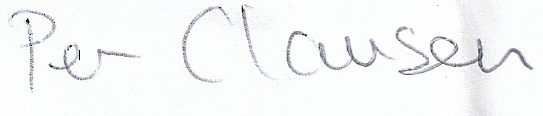 Per Clausen